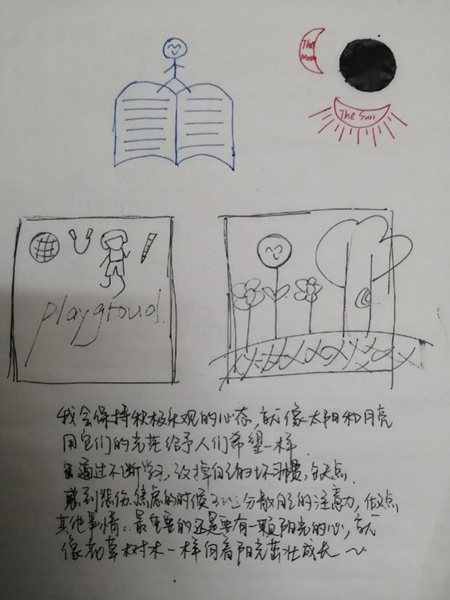 The Moon
The Sun
playgroud
我会保持积极乐观的心态,就像太阳和月亮
用它们的光芒给予人们希望一样
通过不断学习,改掉自己的坏习惯,缺点
感到悲伤焦虑的时候可以分散自己的注意力,做点
其他事情.最重要的还是要有一颗阳光的心,就
像花草树木一样向着阳光茁壮成长~